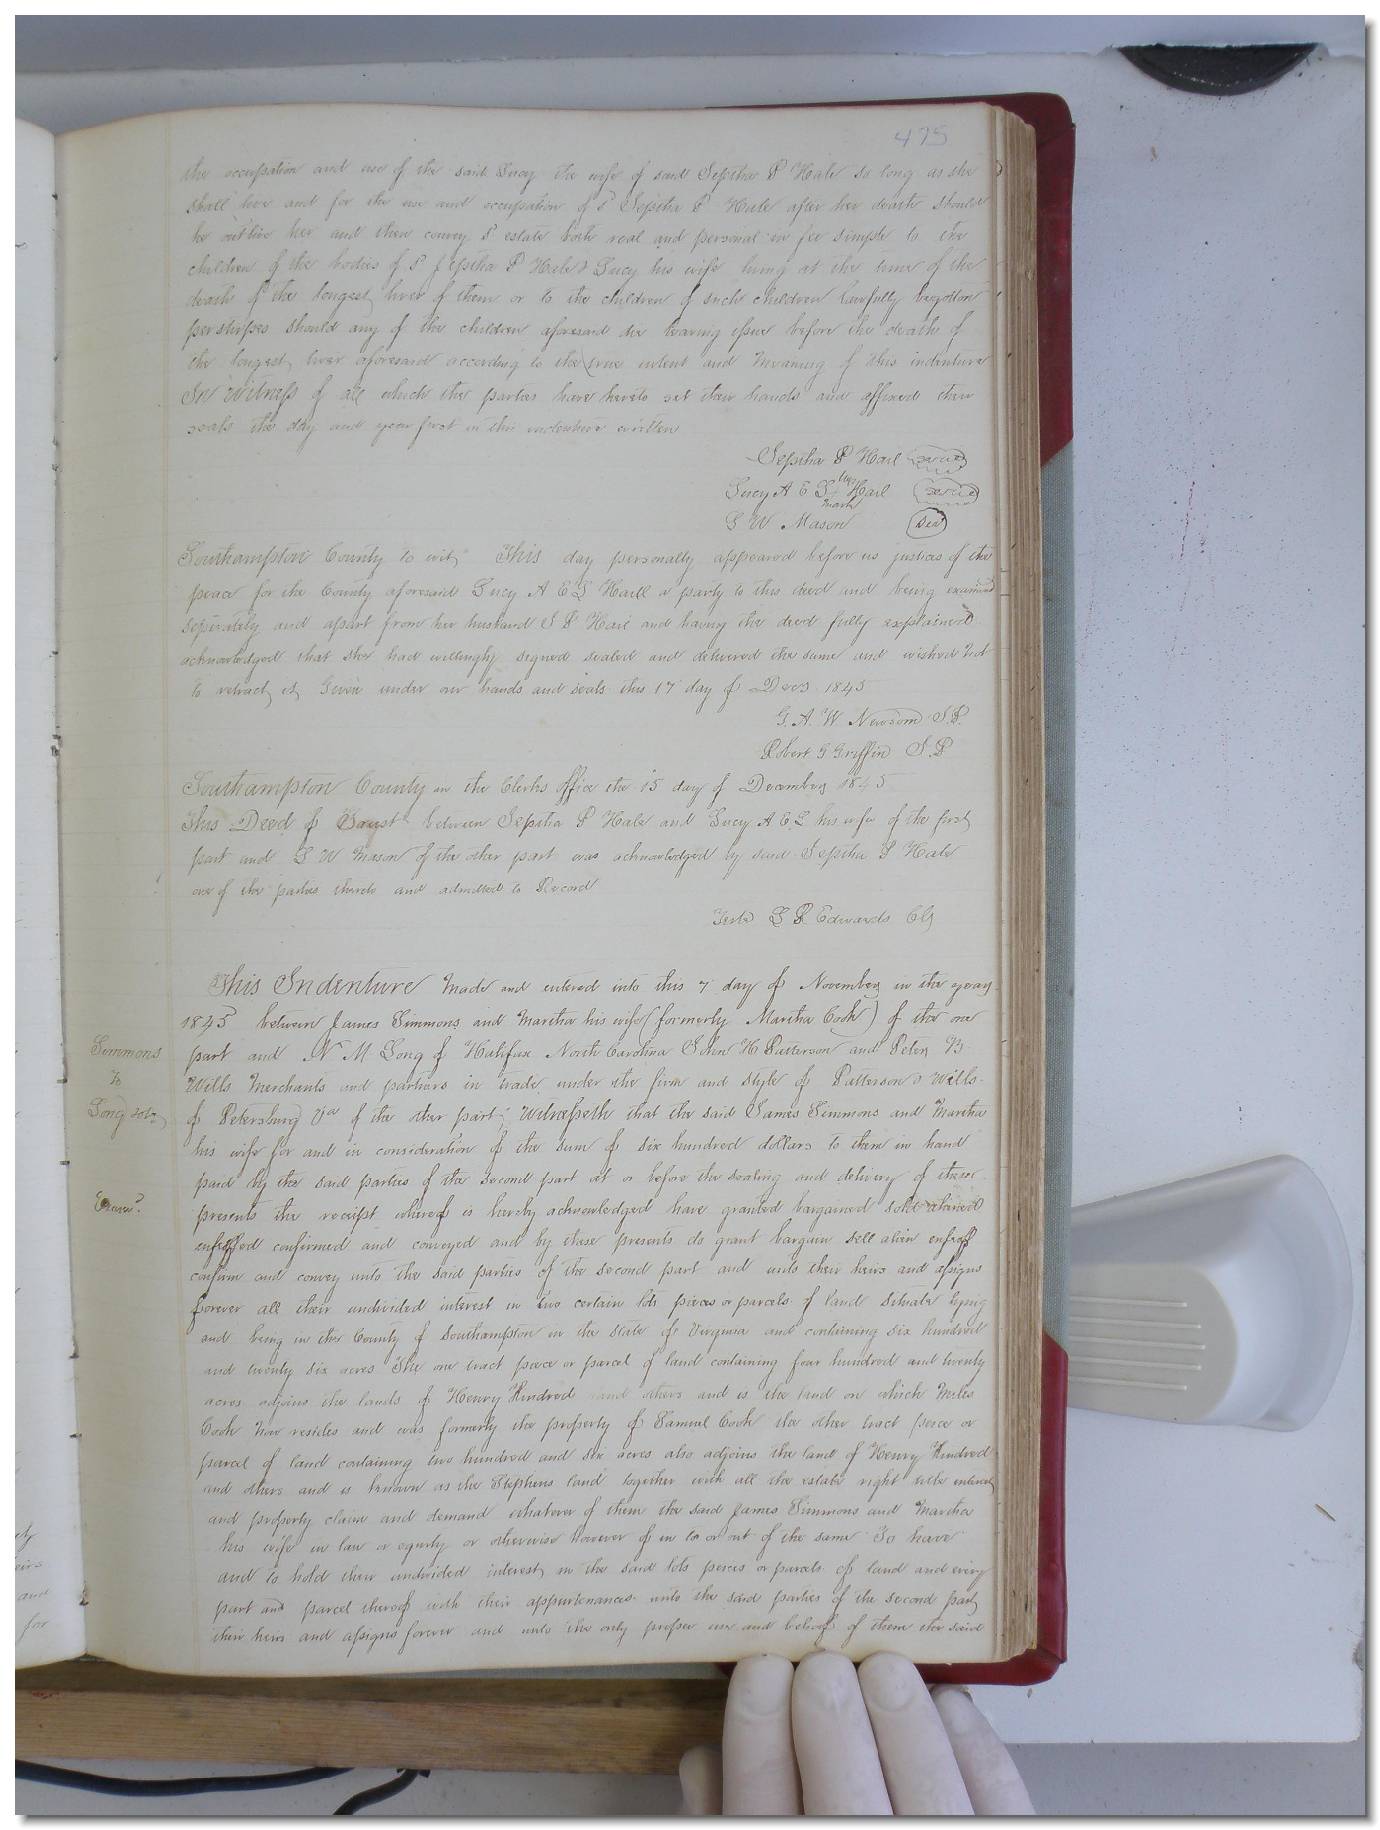 475
the occupation and use of the said Lucy the wife of said Jepitha P Hale so long as she
shall live and for the use and occupation of sd Jepitha P Hale after her death should
he outlive her and then convey sd estate both real and personal in fee simple to the
children of the bodies of sd Jepitha P Hale & Lucy his wife living at the time of the
death of the longest liver of them or to the children of such children lawfully begotton
perstirpes should any of the children aforesaid die leaving issue before the death of
the longest liver aforesaid according to the true intent and meaning of this indenture
In Witness of all which the parties have hereto set their hands and affixed their
seals the day and year first in this indenture written
Jepitha P Hail seal
Lucy A E L her Hail seal
mark
L W Mason Seal
Southampton County to wit, This day personally appeared before us justices of the
peace for the County aforesaid Lucy A E L Haill a party to this deed and being examined
seperately and apart from her husband J P Hail and having the deed fully explained
acknowledged that she had willingly signed sealed and delivered the same and wished not
to retract it Given under our hands and seals this 17 day of Decr 1845
G. A. W Newsom J.P.
Robert G Griffin J P
Southampton County in the Clerks office the 15 day of December 1845
This Deed of Trust between Jepitha P Hale and Lucy A E L his wife of the first
part and L W Mason of the other part was acknowledged by said Jepitha P Hale
one of the parties thereto and admitted to Record
Teste L R Edwards Clk
This Indenture made and entered into this 7 day of November in the year
1845 between James Simmons and Martha his wife (formerly Martha Cook) of the one
Simmons
to
Long
part and N M Long of Halifax North Carolina John H Patterson and Peter B
Wills Merchants and partners in trade under the firm and style of Patterson & Wills
of Petersburg Va of the other part; Witnesseth that the said James Simmons and Martha
his wife for and in consideration of the sum of six hundred dollars to them in hand
paid by the said parties of the second part at or before the sealing and delivery of these
presents the receipt whereof is hereby acknowledged have granted bargained sold aliened
enfeoffed confirmed and conveyed and by these presents do grant bargain sell alien enfeoff
confirm and convey unto the said parties of the second part and unto their heirs and assigns
forever all their undivided interest in two certain lots pieces or parcels of land situate lying
and being in the County of Southampton in the State of Virginia and containing six hundred
and twenty six acres The one tract piece or parcel of land containing four hundred and twenty
acres adjoins the lands of Henry Kindred and others and is the land on which Miles
Cook now resides and was formerly the property of Samuel Cook the other tract piece or
parcel of land containing two hundred and six acres also adjoins the land of Henry Kindred
and others and is known as the Stephens land together with all the estate right title interest
and property claim and demand whatever of them the said James Simmons and Martha
his wife in law or equity or otherwise however of in to or out of the same To have
and to hold their undivided interest in the said lots pieces or parcels of land and every
part and parcel thereof with their appurtenances unto the said parties of the second part
their heirs and assigns forever and unto the only proper use and behoof of them the said